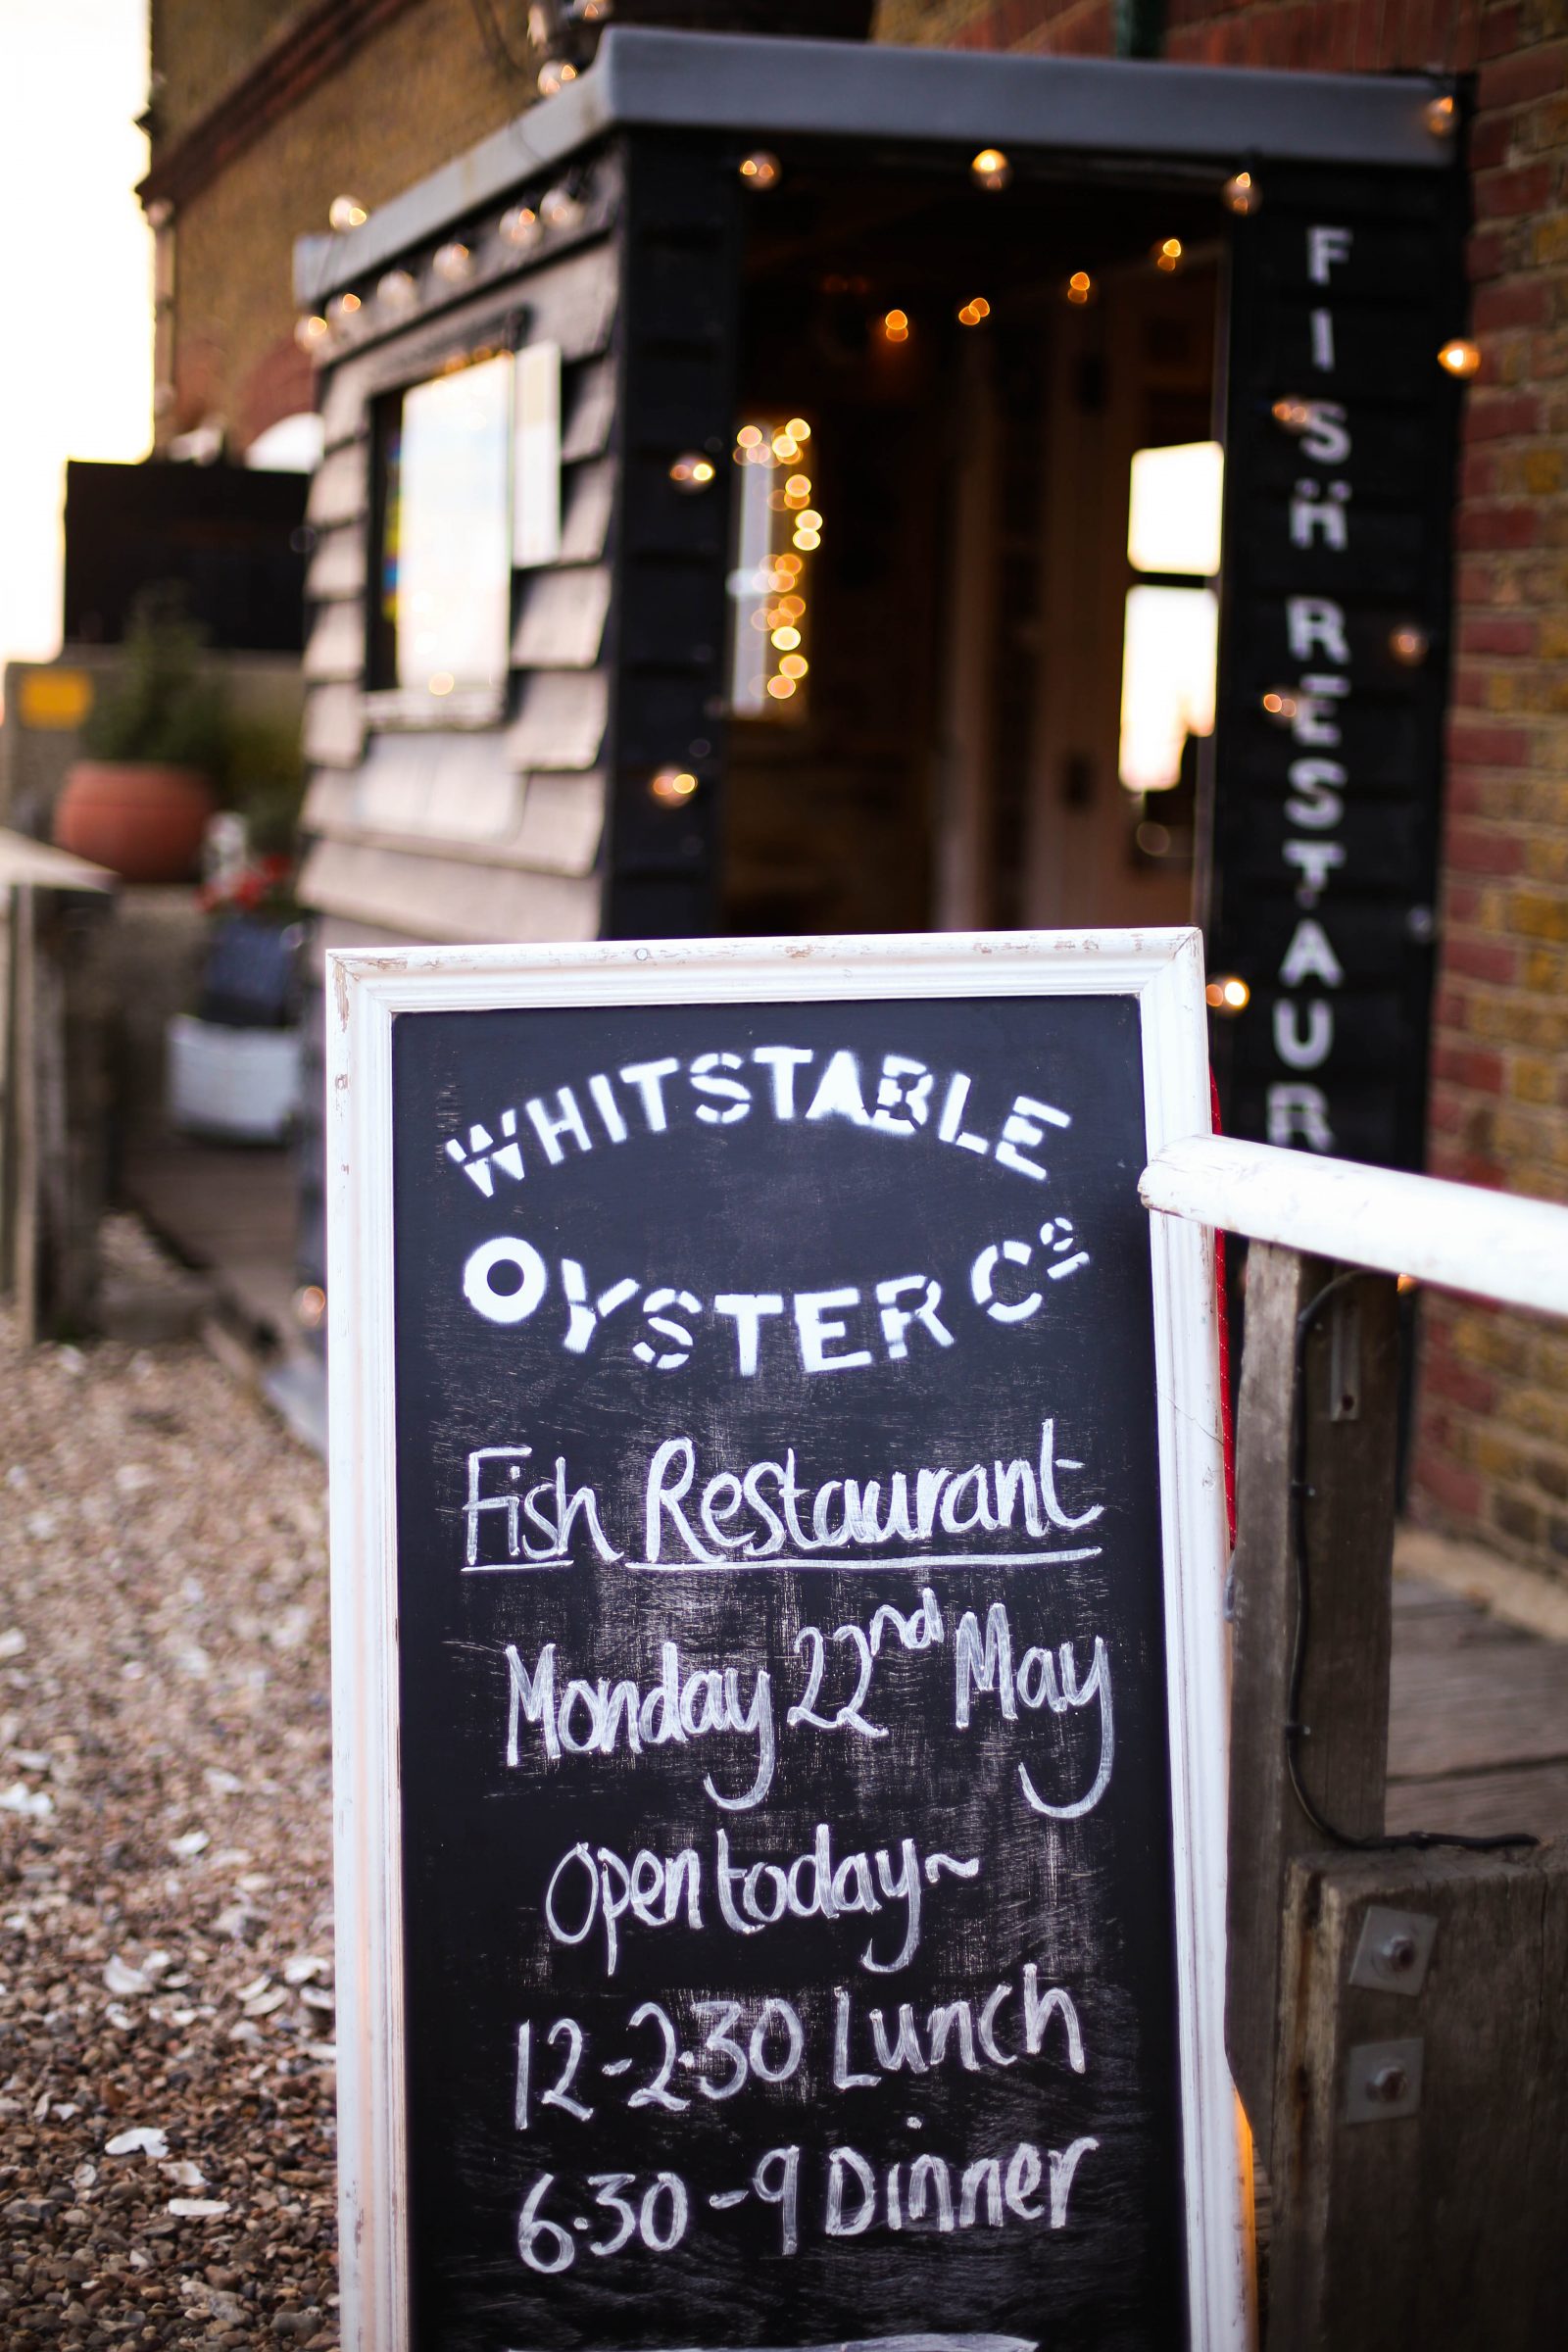 FISH RESTAUR
WHITSTABLE
OYSTER Co
Fish Restaurant
Monday 22nd May
Open today~
12-2.30 Lunch
6.30-9 Dinner